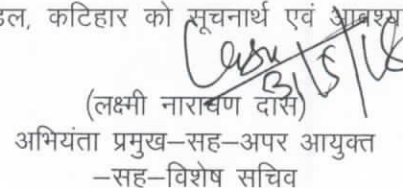 डल, कटिहार को सूचनार्थ एवं आवश्य
31/5/18
(लक्ष्मी नारायण दास)
अभियंता प्रमुख–सह–अपर आयुक्त
–सह–विशेष सचिव